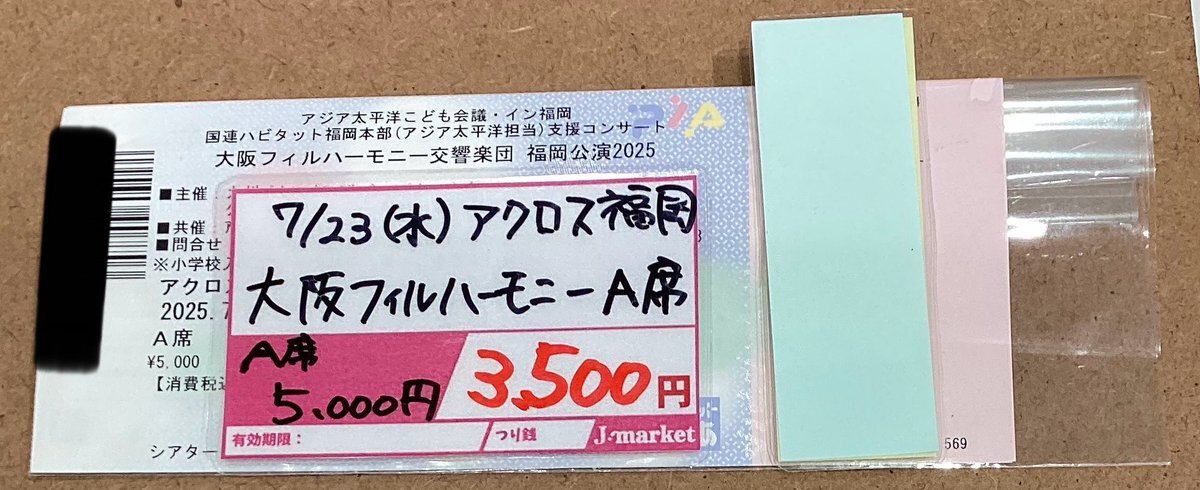 アジア太平洋こども会議・イン福岡
国連ハビタット福岡本部(アジア太平洋担当)支援コンサート
大阪フィルハーモニー交響楽団 福岡公演2025
■主催
■共催
■問合せ
※小学校
アクロス
2025.7
A席
¥5,000
【消費税込
シアター
7/23(水)アクロス福岡
大阪フィルハーモニーA席
A席
5,000円
3,500円
有効期限:
つり銭
J・market
569